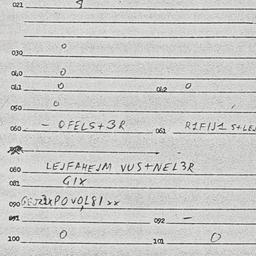 021
030 0
040 0
041 0 042 0
050 0
060 - OFELS+3R 061 R1FIJ1 S+LEJ
080 LEJFAHEJM VUS+NEL3R
081 GIX
090
091 092 -
100 0 101 0